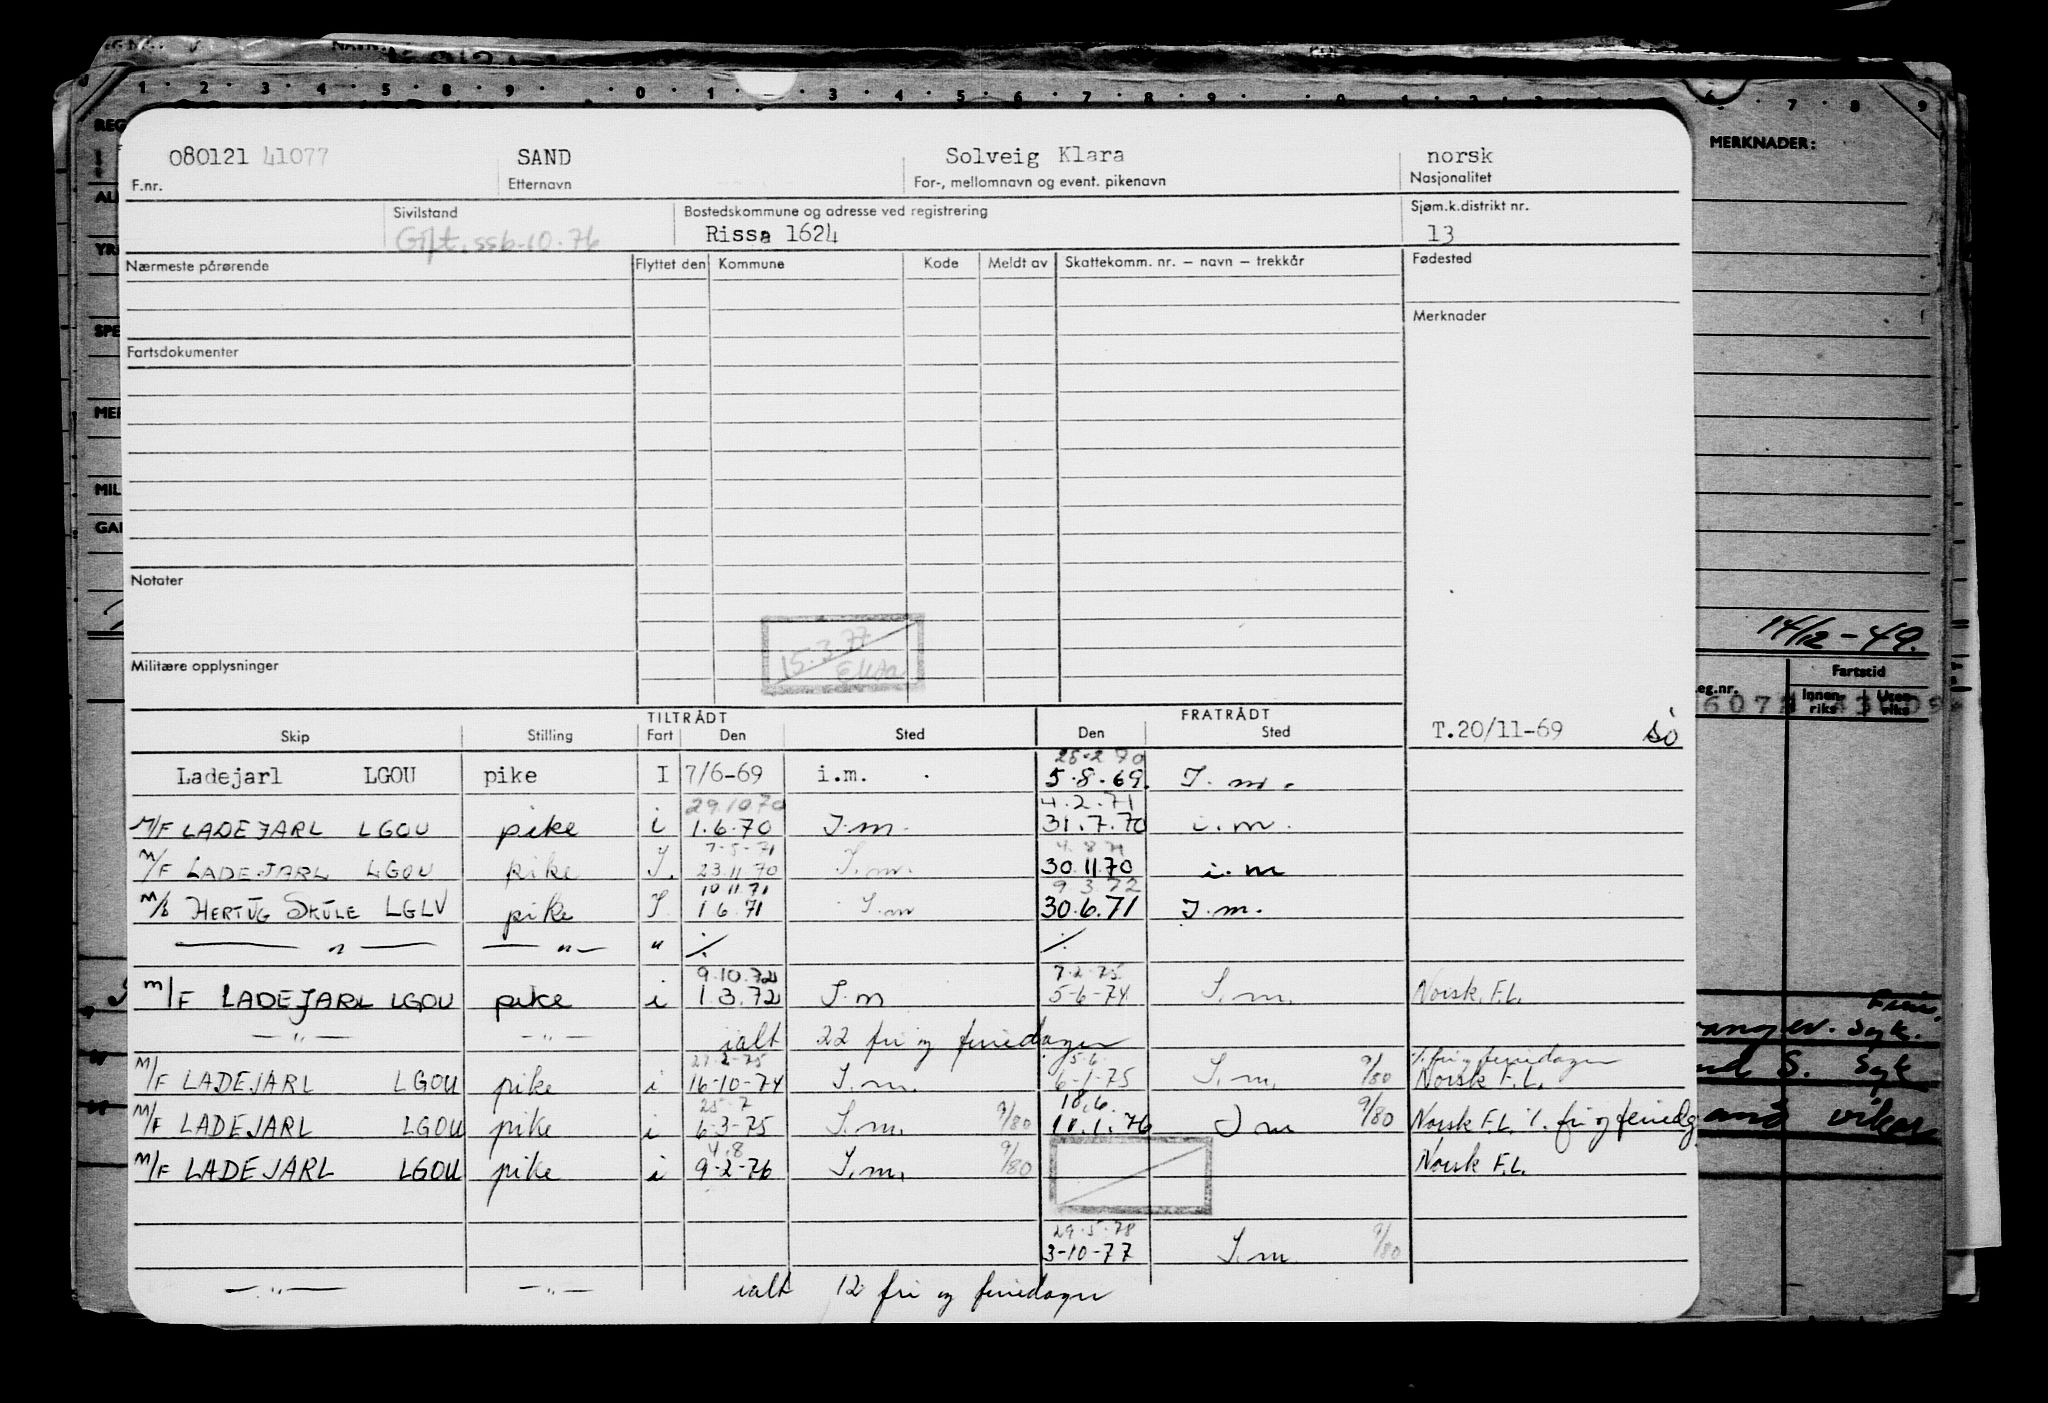 1 2 3 4 5 8 9 0 1 3 4 5 6 7 8 9 0 6 7 8 9
MERKNADER:
080121 41077 SAND Solveig Klara norsk
F.nr. Etternavn For-, mellomnavn og event. pikenavn Nasjonalitet
Sivilstand Bostedskommune og adresse ved registrering Sjøm.k.distrikt nr.
Gift. ssb-10.76 Rissa 1624 13
Nærmeste pårørende Flyttet den Kommune Kode Meldt av Skattekomm. nr. – navn – trekkår Fødested
Merknader
Fartsdokumenter
Notater
15.3.77
Militære opplysninger
14/12-49.
Fartstid
eg.nr. Innen-riks Uten-riks
TILTRÅDT FRATRÅDT
Skip Stilling Fart Den Sted Den Sted T.20/11-69 sò
25-2 70
Ladejarl LGOU pike I 7/6-69 i.m. 5.8.69. I.m.
29.10.70 4.2.71
M/F LADEJARL LGOU pike i 1.6.70 I.m. 31.7.70 i.m.
7-5-71 4.8 71
M/F LADEJARL LGOU pike I. 23.11.70 I.m. 30.11.70 i.m
10.11.71 9 3.72
HERTUG SKULE LGLV pike I 1 6.71 I.m 30.6.71 I.m.
— " — — " — " ⁒ ⁒
9.10.72 7-2-75
M/F LADEJARL LGOU pike i 1.3.72 I.m 5-6-74 I.m. Norsk F.L.
— " — — " — ialt 22 fri og feriedager
27-2-75 5-6 ⁒ fri og feriedager
M/F LADEJARL LGOU pike i 16-10-74 I.m. 6-1-75 I.m. 9/80 Norsk F.L.
25-7 18.6.
M/F LADEJARL LGOU pike i 6-3-75 I.m. 9/80 11.1.76 I m 9/80 Norsk F.L. ⁒ fri og feriedg
4.8
M/F LADEJARL LGOU pike i 9-2-76 I.m. 9/80 Norsk F.L.
29-5-78
3-10-77 I.m. 9/80
— " — — " — ialt 12 fri og feriedager